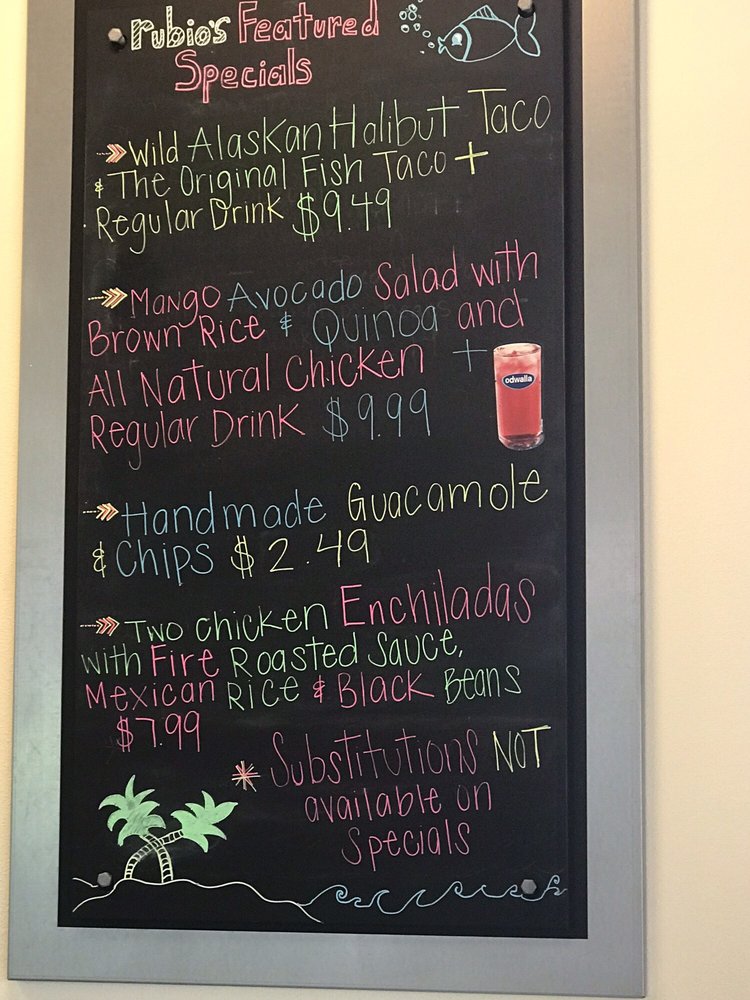 rubio's Featured
Specials
Wild Alaskan Halibut Taco
& The Original Fish Taco +
Regular Drink $9.49
Mango Avocado Salad with
Brown Rice & Quinoa and
All Natural Chicken +
Regular Drink $9.99
odwalla
Handmade Guacamole
& Chips $2.49
Two Chicken Enchiladas
with Fire Roasted Sauce,
Mexican Rice & Black Beans
$7.99
* Substitutions NOT
available on
Specials